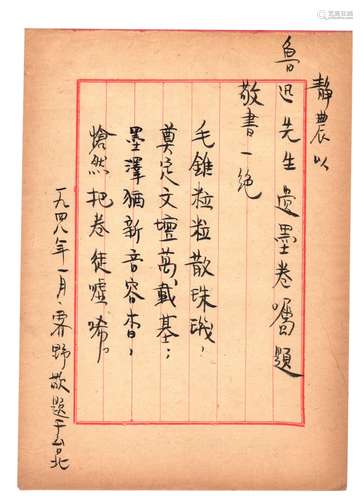 静農以
魯迅先生遺墨卷囑題
敬書一絕
毛錐粒粒散珠璣，
奠定文壇萬載基；
墨澤猶新音容杳，
愴然把卷徒噓唏。
一九四八年一月，霽野敬題于台北